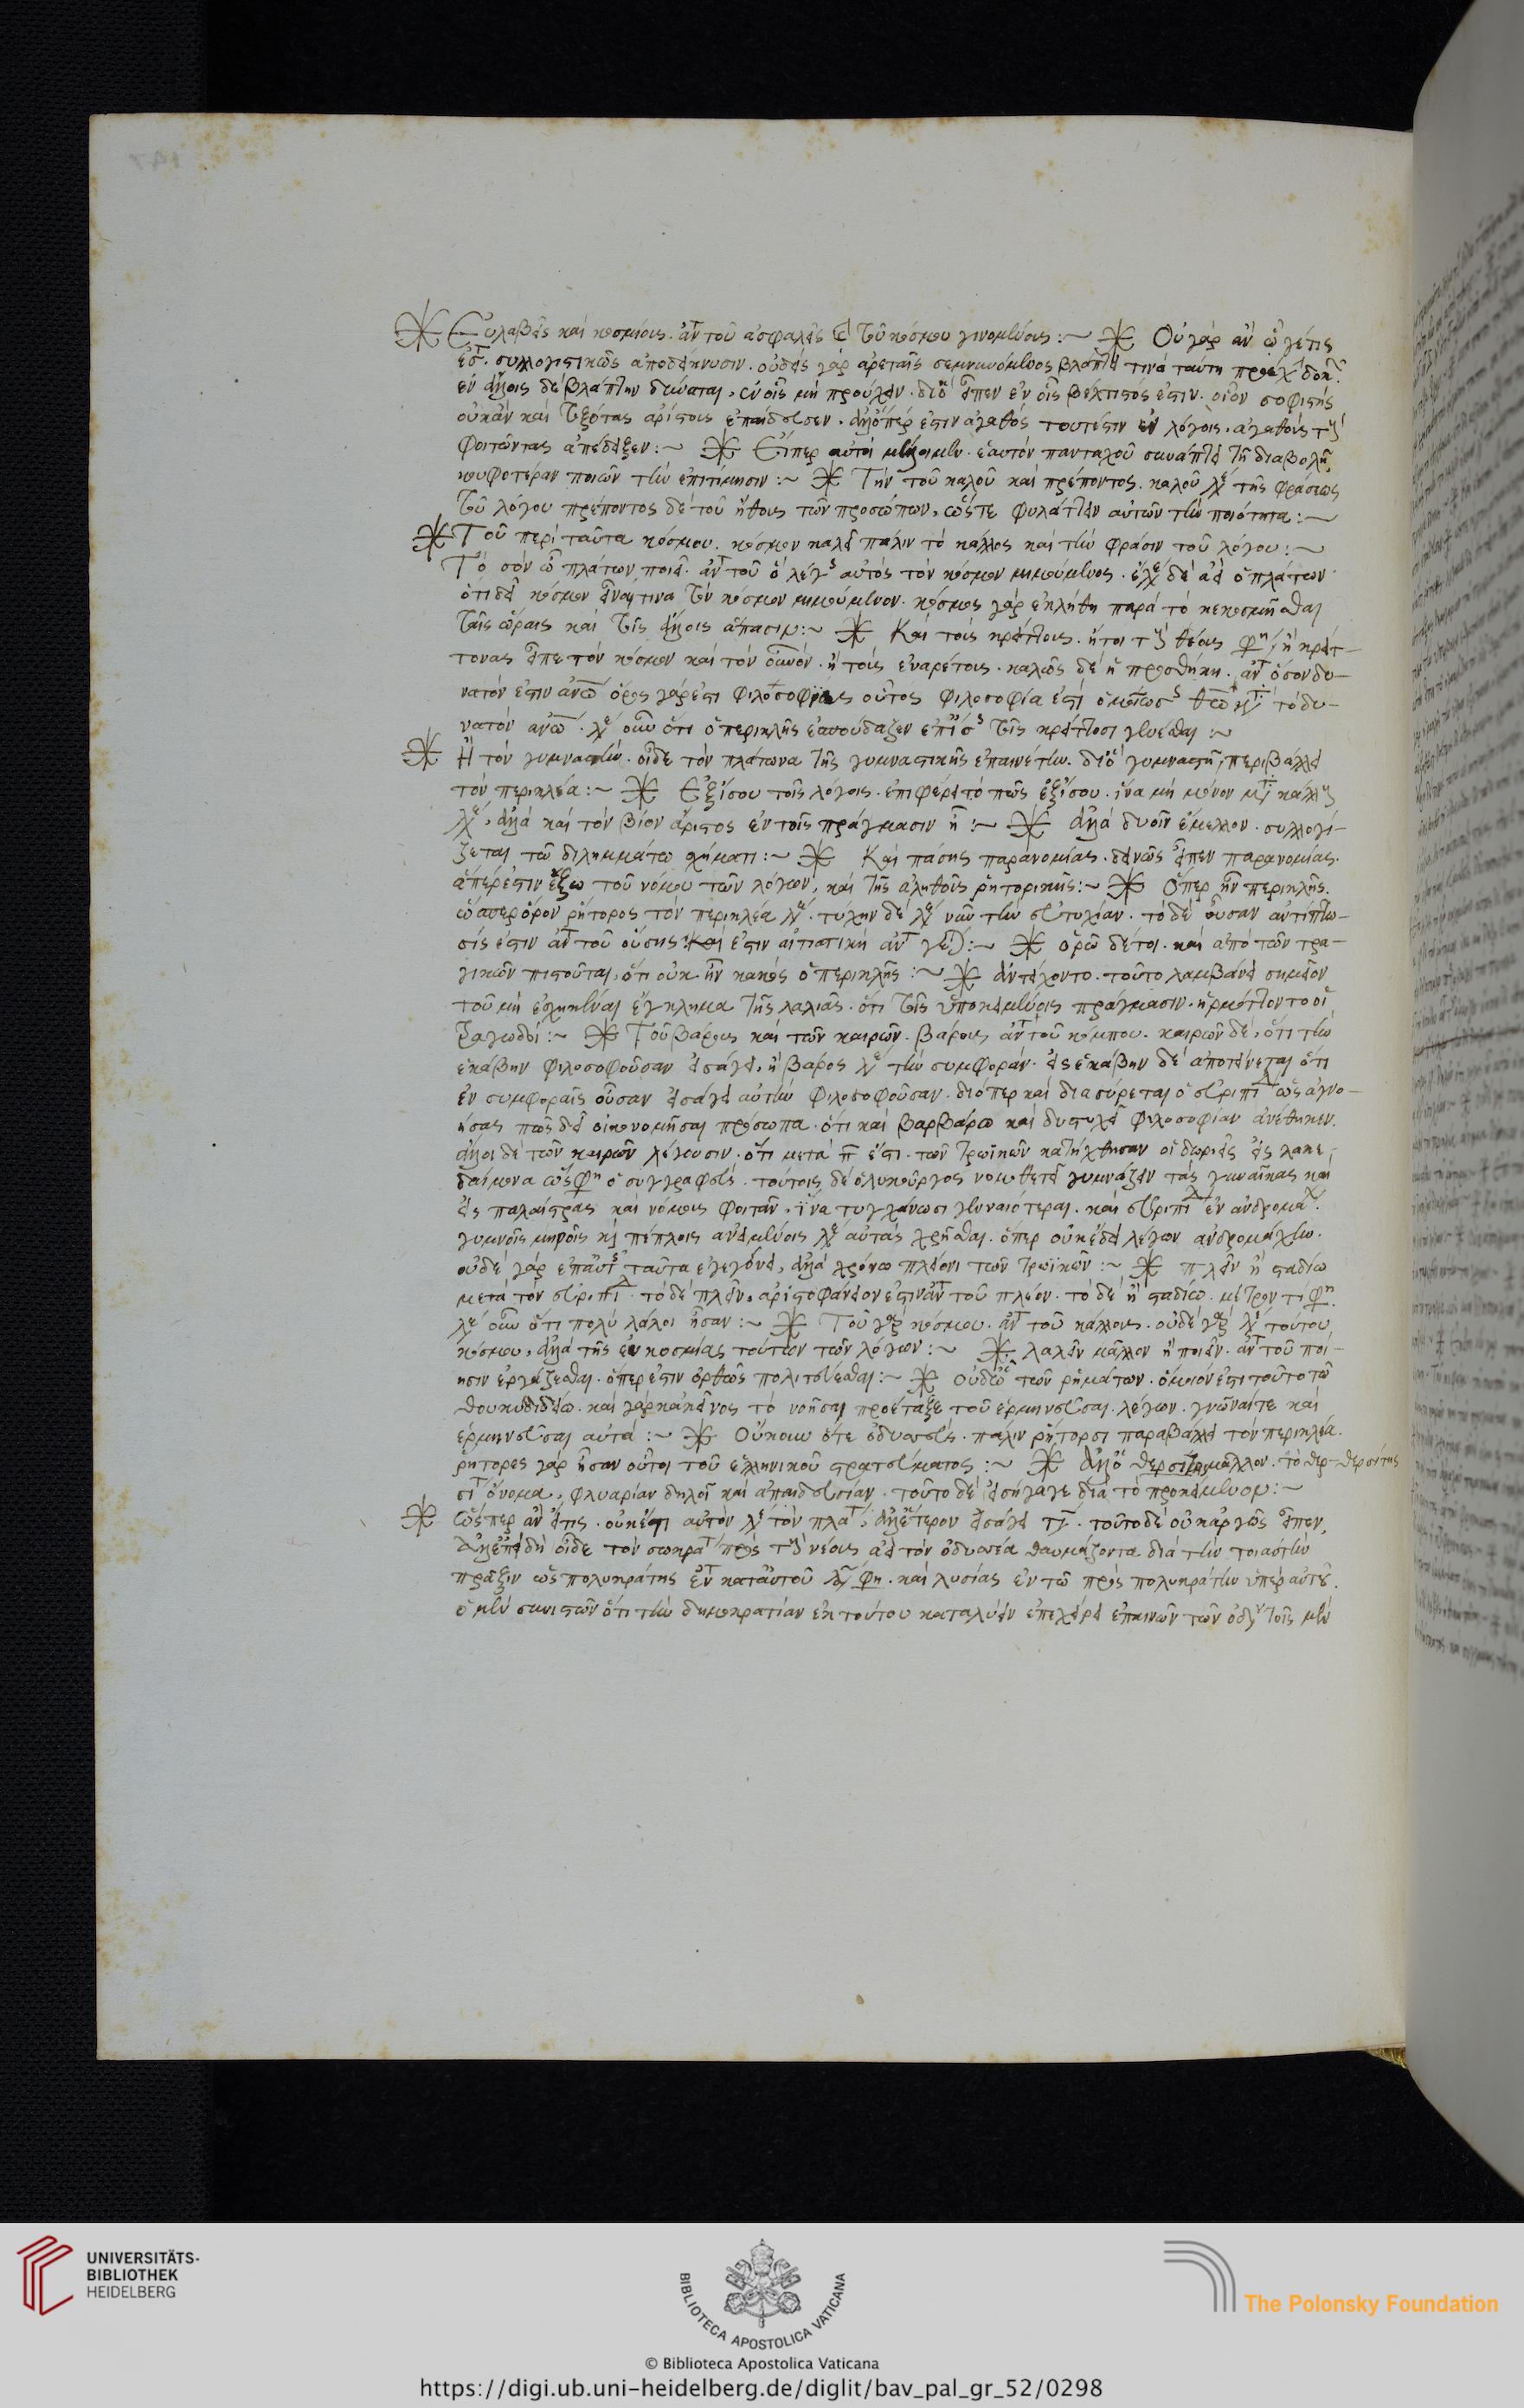 Εὐλαβεῖς καὶ κοσμίους. ἀντ τοῦ ἀσφαλεῖς καὶ τοῦ κόσμου γινομένους :~ Οὐ γὰρ ἂν
συλλογιστικῶς ἀποδείκνυσιν. οὐδεὶς γὰρ ἀρεταῖς σεμνυνόμενος βλάπτει τινὰ ταύτη
ἐν ἄλλοις δὲ βλάπτειν δύναται, ἐν οἷς μὴ προύχει. διὸ εἶπεν ἐν οἷς βέλτιστός ἐστιν. οἷον σοφιστὴς
οὐκ ἂν καὶ ἀρίστους ἐπαίδευσεν. ἀλλ' ὅπερ ἐστιν ἀγαθὸς τουτέστιν ἐν λόγοις. ἀγαθοὺς τοὺς
φοιτῶντας ἀπέδειξεν :~ Εἴπερ αὐτοὶ ἑαυτὸν πανταχοῦ συνάπτει τῇ διαβολῇ,
κουφοτέραν ποιῶν τὴν ἐπιτίμησιν :~ Τὴν τοῦ καλοῦ καὶ πρέποντος. καλοῦ λέγει τῆς φράσεως
τοῦ λόγου πρέποντος δὲ τοῦ ἤθους τῶν προσώπων, ὥστε φυλάττειν αὐτῶν τὴν ποιότητα :~
Τοῦ περὶ ταῦτα κόσμου. κόσμον καλεῖ πάλιν τὸ κάλλος καὶ τὴν φράσιν τοῦ λόγου :~
Τὸ σὸν ὦ πλάτων ποιεῖ. ἀντ τοῦ ὁ λέγεις αὐτὸς τὸν κόσμον μιμούμενος. ἔλεγε δὲ ἀεὶ ὁ πλάτων
ὅτι δεῖ κόσμον εἶναι τινα τὸν κόσμον μιμούμενον. κόσμος γὰρ ἐκλήθη παρὰ τὸ κεκοσμῆσθαι
ταῖς ὥραις καὶ τοῖς ἄλλοις ἅπασιν :~ Καὶ τοῖς κρείττοις. ἤτοι τοὺς θεοὺς φη, ἢ κρείτ-
τονας εἶπε τὸν κόσμον καὶ τὸν οὐνόν. ἢ τοῖς ἐναρέτοις. καλῶς δὲ ἡ προσθήκη. ἀντ ὅσον δυ-
νατόν ἐστιν ἀνῶ ὅρος γάρ ἐστι φιλοσοφίας οὗτος φιλοσοφία ἐστὶ ὁμοίωσις θεῶ κατὰ τὸ δυ-
νατὸν ἀνῶ. λέγει οὖν ὅτι ὁ περικλῆς ἐσπούδαζεν ἐπίσης τοῖς κρείττοσι γενέσθαι :~
Ἢ τὸν γυμναστὴν. οἶδε τὸν πλάτωνα τῆς γυμναστικῆς ἐπαινέτην. διὸ γυμναστῇ παραβάλλει
τὸν περικλέα :~ Ἐξίσου τοῖς λόγοις. ἐπιφέρει τὸ πῶς ἐξίσου. ἵνα μὴ μόνον μετὰ κάλλους
λέγῃ, ἀλλὰ καὶ τὸν βίον ἄριστος ἐν τοῖς πράγμασιν ᾖ :~ Ἀλλὰ δυοῖν ἔμελλον. συλλογί-
ζεται τῶ διλημμάτω σχήματι :~ Καὶ πάσης παρανομίας. δεινῶς εἶπεν παρανομίας.
ἅπερ ἐστιν ἔξω τοῦ νόμου τῶν λόγων, καὶ τῆς ἀληθοῦς ῥητορικῆς :~ Ὅπερ ἦν περικλῆς.
ὥσπερ ὅρον ῥήτορος τὸν περικλέα λέγει. τύχην δὲ λέγει νῦν τὴν εὐτυχίαν. τὸ δὲ οὖσαν ἀντίπτω-
σίς ἐστιν ἀντ τοῦ οὔσης ἐστιν αἰτιατικὴ ἀντ γε :~ ὁρῶ δέ τοι. καὶ ἀπὸ τῶν τρα-
γικῶν πιστοῦται, ὅτι οὐκ ἦν κακὸς ὁ περικλῆς :~ ἀντείχοντο. τοῦτο λαμβάνει σημεῖον
τοῦ μὴ ἐσχηκέναι ἔγκλημα τῆς λαλιᾶς. ὅτι τοῖς ὑποκειμένοις πράγμασιν. ἡρμόττοντο οἱ
τραγωδοί :~ Τοῦ βάρους καὶ τῶν καιρῶν. βάρους ἀντ τοῦ κόμπου. καιρῶν δὲ, ὅτι τὴν
ἑκάβην φιλοσοφοῦσαν εἰσάγει, ἢ βάρος λέγει τὴν συμφοράν. εἰς ἑκάβην δὲ ἀποτείνεται ὅτι
ἐν συμφοραῖς οὖσαν εἰσάγει αὐτὴν φιλοσοφοῦσαν. διόπερ καὶ διασύρεται ὁ εὐριπί ὡς ἀγνο-
ήσας πῶς δεῖ οἰκονομῆσαι πρόσωπα. ὅτι καὶ βαρβάρω καὶ δυστυχεῖ φιλοσοφίαν ἀνέθηκεν.
ἄλλοι δὲ τῶν καιρῶν λέγουσιν. ὅτι μετὰ π ἔτι. τῶν τρωϊκῶν κατήχθησαν οἱ δωριεῖς εἰς λακε-
δαίμονα ὥς φη ὁ συγγραφεύς. τούτοις δὲ ὁ λυκοῦργος νομοθετεῖ γυμνάζειν τὰς γυναῖκας καὶ
εἰς παλαίστρας καὶ νόμους φοιτᾶν. ἵνα τυγχάνωσι γενναιότεραι. καὶ εὐριπί ἐν ἀνδρομά.
γυμνοῖς μηροῖς καὶ πέπλοις ἀνειμένοις λέγει αὐτὰς χρῆσθαι. ὅπερ οὐκ ἔδει λέγων ἀνδρομάχην.
οὐδὲ γὰρ ἐπ αὐτῆς ταῦτα ἐγεγόνει, ἀλλὰ χρόνω πλείονι τῶν τρωϊκῶν :~ πλεῖν ἢ σταδίω
μετὰ τὸν εὐριπί. τὸ δὲ πλεῖν, ἀριστοφάνειον ἐστιν ἀντ τοῦ πλέον. τὸ δὲ ἢ σταδίω. μέτρον τι φη
λέγει οὖν ὅτι πολὺ λάλοι ἦσαν :~ Τοῦ γὰρ κόσμου. ἀντ τοῦ κάλλους. οὐδὲ γὰρ λέγει τούτου
κόσμου, ἀλλὰ τῆς εὐκοσμίας τούτων τῶν λόγων :~ λαλεῖν μᾶλλον ἢ ποιεῖν. ἀντ τοῦ ποί-
ησιν ἐργάζεσθαι. ὅπερ ἐστιν ὀρθῶς πολιτεύεσθαι :~ τῶν ῥημάτων. ὅμοιόν ἐστι τοῦτο τῶ
θουκυδίδω. καὶ γὰρ κἀκεῖνος τὸ νοῆσαι προέταξε τοῦ ἑρμηνεῦσαι. λέγων. γνῶναί τε καὶ
ἑρμηνεῦσαι αὐτά :~ Οὔκουν ὅτε ὀδυσσεύς. πάλιν ῥήτορσι παραβάλλει τὸν περικλέα.
ῥήτορες γὰρ ἦσαν οὗτοι τοῦ ἑλληνικοῦ στρατεύματος :~ ἀλλ' ὁ θερσίτης μᾶλλον. τὸ θερ- θερσίτης
σι ὄνομα, φλυαρίαν δηλοῖ καὶ ἀπαιδευσίαν. τοῦτο δὲ εἰσήγαγε διὰ τὸ προκείμενον :~
ὥσπερ ἂν εἴ τις. οὐκέτι αὐτὸν λέγει τὸν πλάτ, ἀλλ' ἕτερον εἰσάγει τοῦτο δὲ οὐκ ἀργῶς εἶπεν,
ἀλλ' ἐπειδὴ οἶδε τὸν σωκράτ πρὸς τοὺς νέους ἀεὶ τὸν ὀδυσσέα θαυμάζοντα διὰ τὴν τοιαύτην
πρᾶξιν ὡς πολυκράτης ἐν τῶ κατ αὐτοῦ λόγω φη. καὶ λυσίας ἐν τῶ πρὸς πολυκράτην ὑπὲρ αὐτοῦ.
ὁ μὲν συνιστῶν ὅτι τὴν δημοκρατίαν ἐκ τούτου καταλύειν ἐπεχείρει ἐπαινῶν τῶν τοῖς μὲν
UNIVERSITÄTS-
BIBLIOTHEK
HEIDELBERG
BIBLIOTECA APOSTOLICA VATICANA
The Polonsky Foundation
© Biblioteca Apostolica Vaticana
https://digi.ub.uni-heidelberg.de/diglit/bav_pal_gr_52/0298